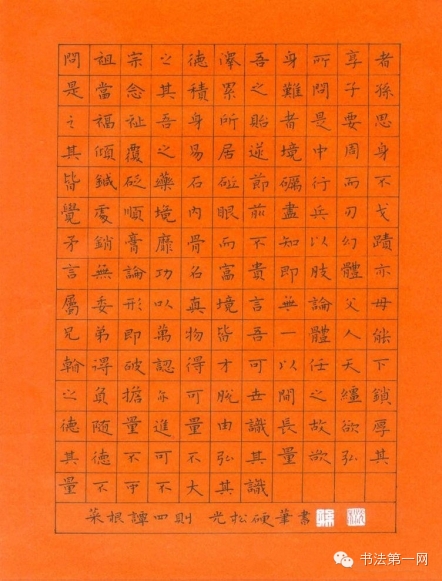 問祖宗之德澤吾身所享者
是當念其積累之難問子孫
之福祉吾身所貽者是要思
其傾覆之易居逆境中周身
皆鍼砭藥石砥節礪行而不
覺處順境內眼前盡兵刃戈
矛銷膏靡骨而不知以幻蹟
言無論功名富貴即肢體亦
屬委形以真境言無論父母
兄弟即萬物皆吾一體人能
翰得破認得才可以任天下
之負擔亦可脫世間之韁鎖
德隨量進量由識長故欲厚
其德不可不弘其量欲弘其
量不可不大其識
菜根譚四則 光松硬筆書
书法第一网